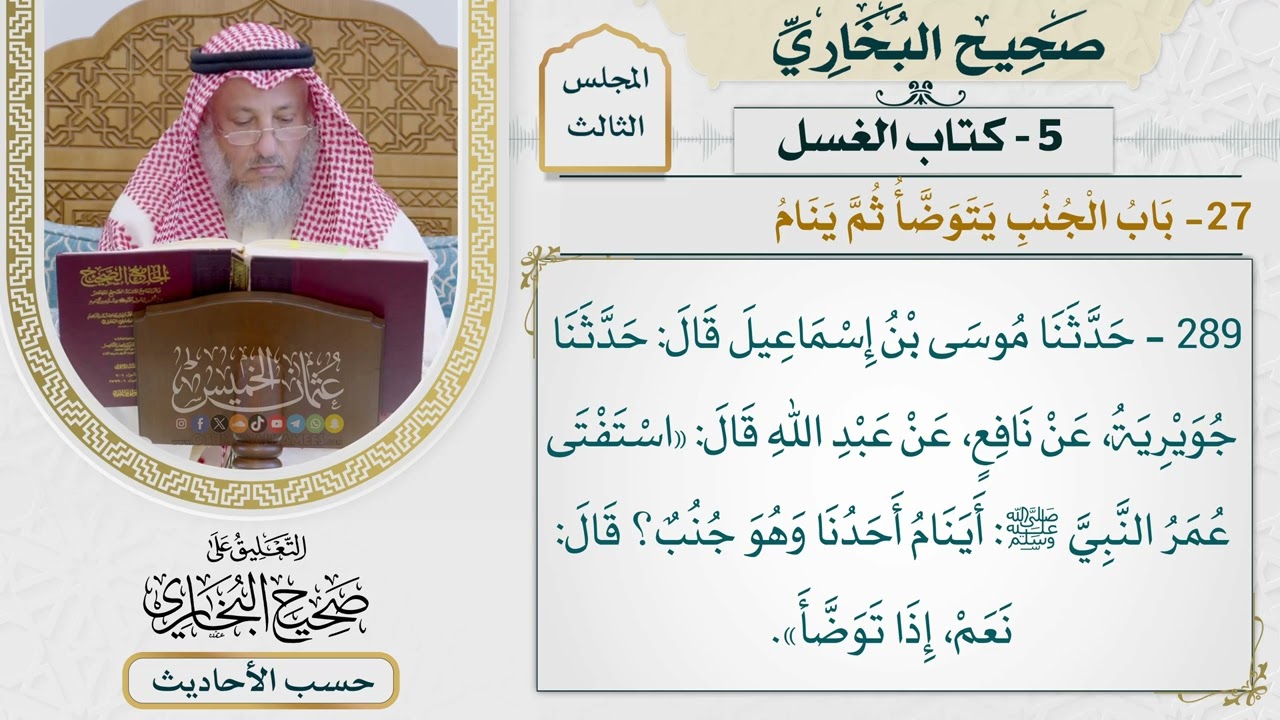 صَحِيح البُخَارِيِّ
المجلس
الثالث
5 - كتاب الغسل
27- بَابُ الْجُنُبِ يَتَوَضَّأُ ثُمَّ يَنَامُ
289 - حَدَّثَنَا مُوسَى بْنُ إِسْمَاعِيلَ قَالَ: حَدَّثَنَا
جُوَيْرِيَةُ، عَنْ نَافِعٍ، عَنْ عَبْدِ اللهِ قَالَ: «اسْتَفْتَى
عُمَرُ النَّبِيَّ ﷺ: أَيَنَامُ أَحَدُنَا وَهُوَ جُنُبٌ؟ قَالَ:
نَعَمْ، إِذَا تَوَضَّأَ».
الجامع الصحيح
عُثمان الخميس
التَّعْلِيقُ عَلَى
صَحِيحُ البُخَارِي
حسب الأحاديث